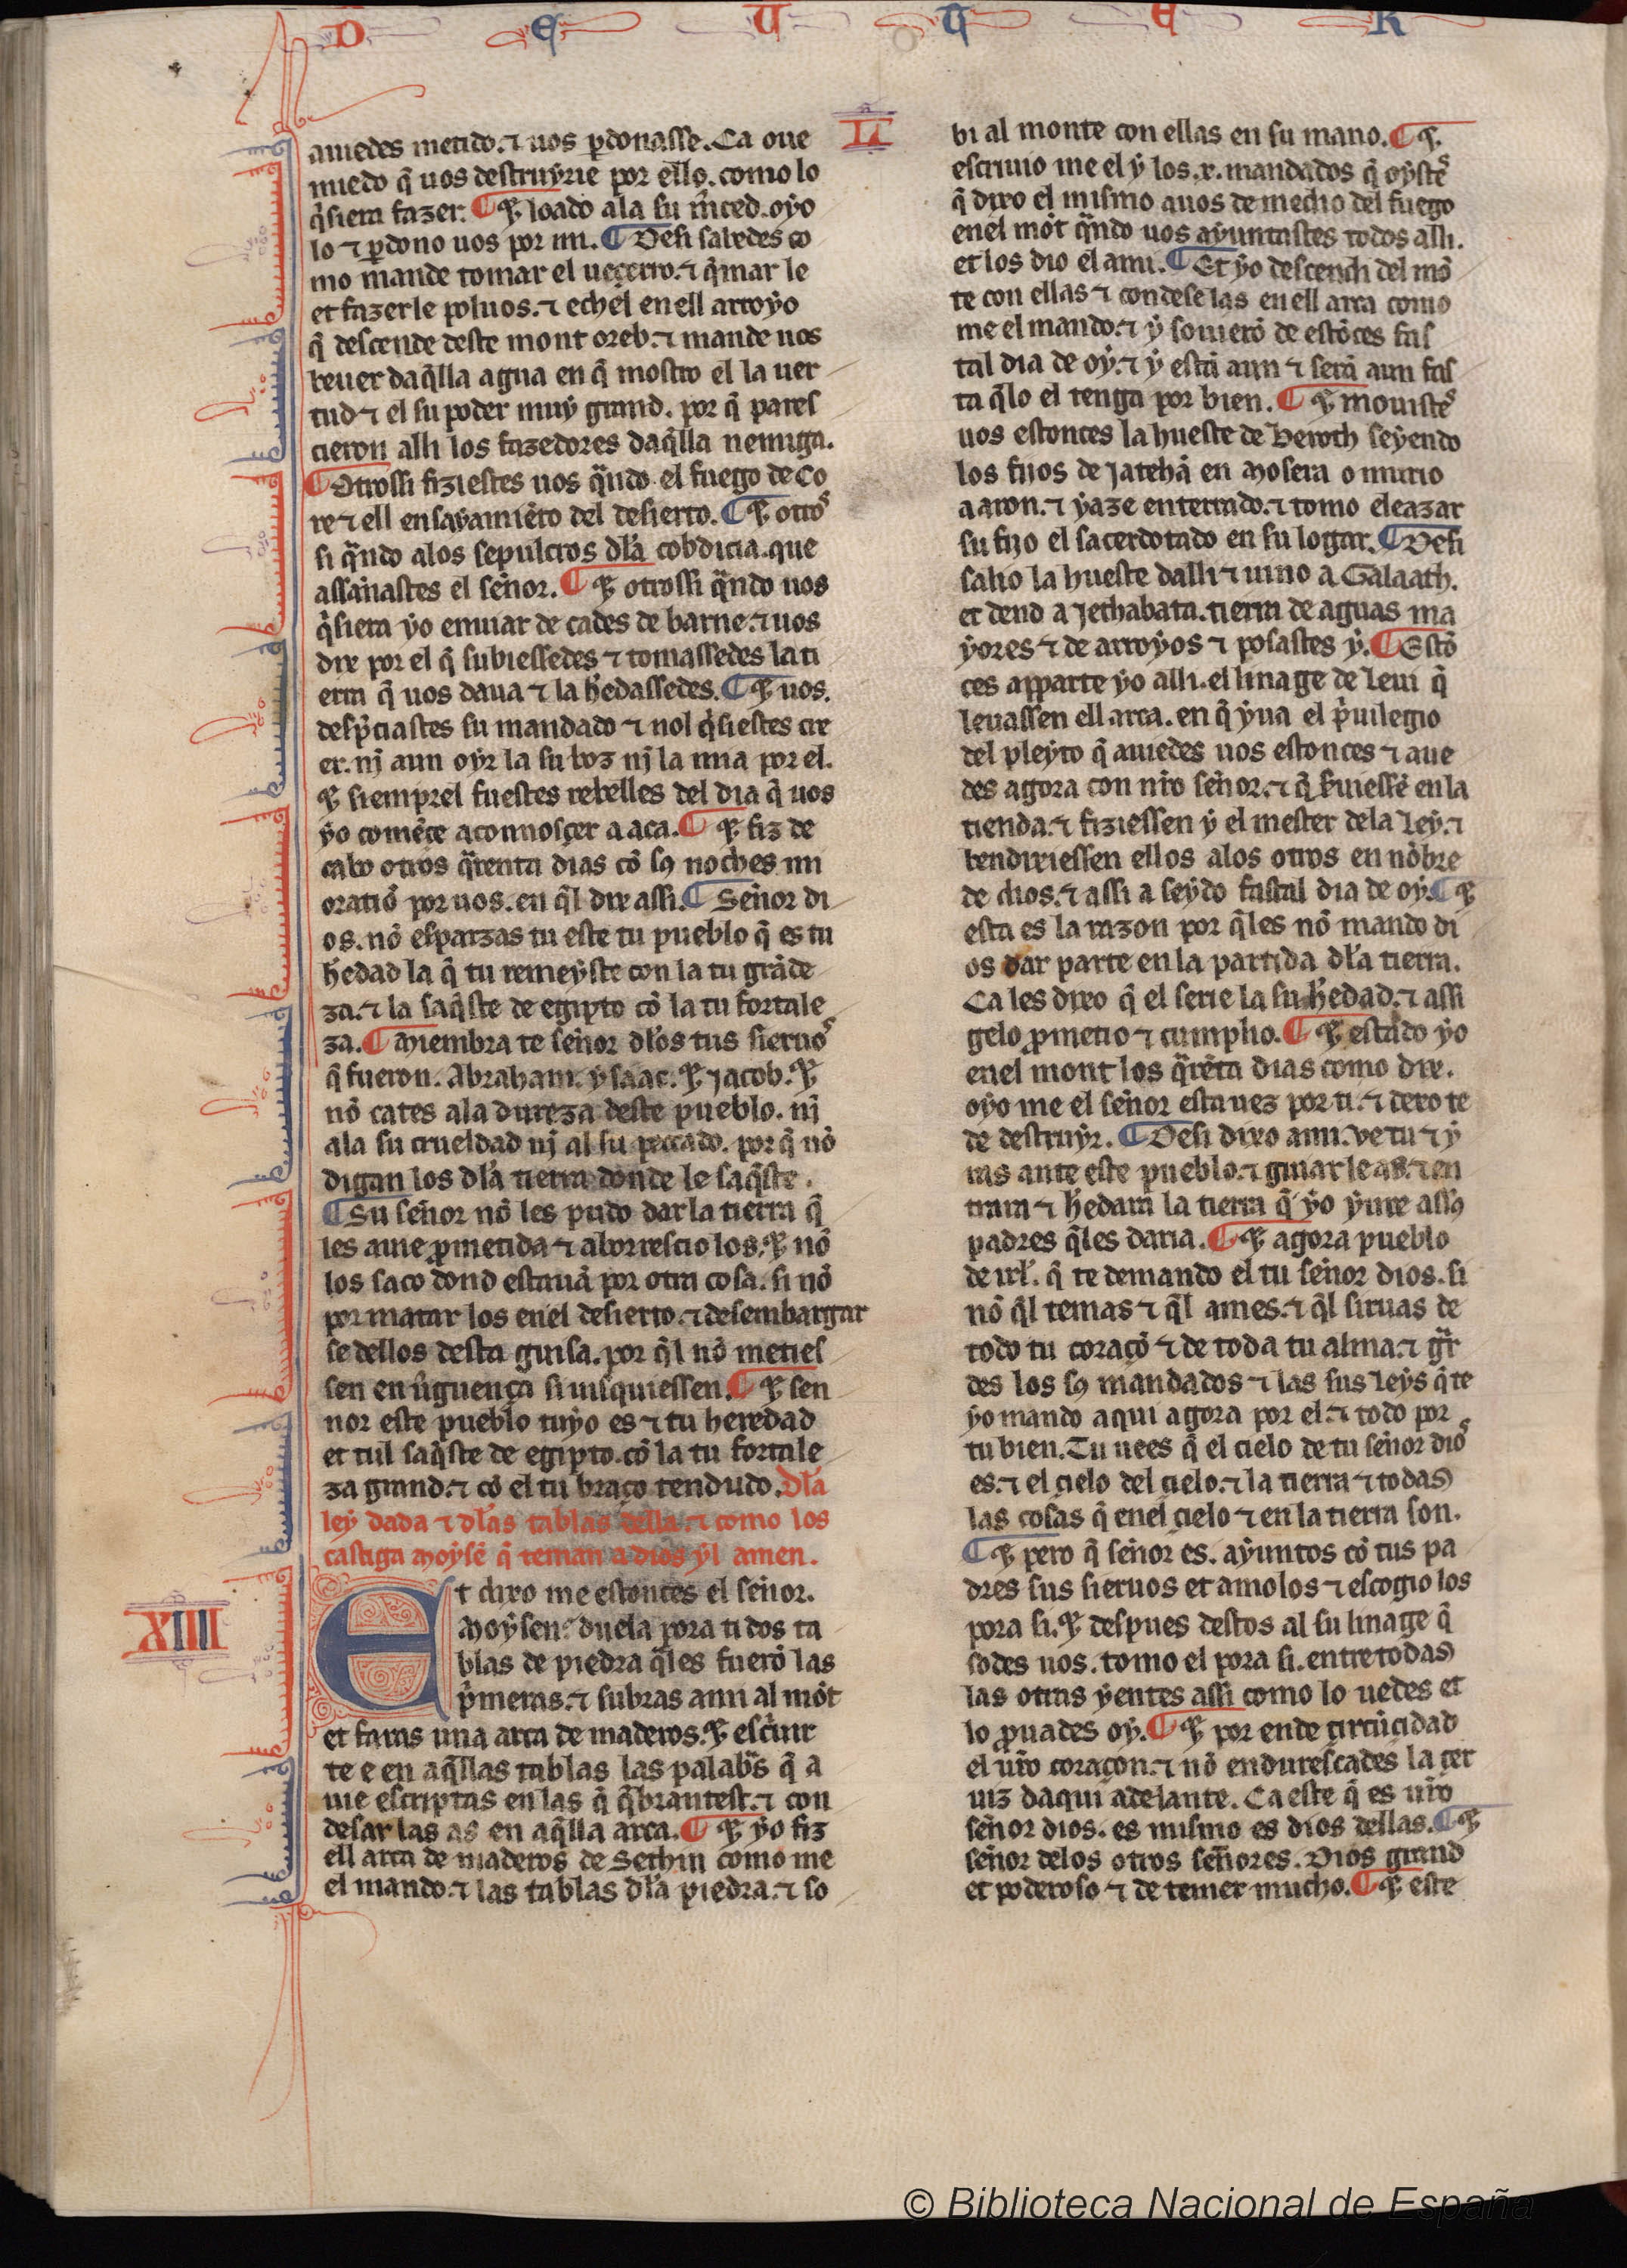 D E U T E R
auiedes metido. ⁊ uos ꝑdonasse. Ca oue
miedo q̃ uos destruyrie por ello. como lo
q̇siera fazer. ¶ ⁊ loado a la su mr̃ced. oyo
lo ⁊ ꝑdono uos por mi. ¶ Desi sabedes co
mo mande tomar el uezerro. ⁊ q̃mar le
et fazer le poluos. ⁊ echel en ell arroyo
q̃ descende deste mont oreb. ⁊ mande uos
beuer daq̃lla agua en q̃ mostro el la uer
tud ⁊ el su poder muy grand. por q̃ pares
cieron alli los fazedores daq̃lla nemiga.
¶ Otrossi fiziestes uos q̃ndo el fuego de Co
re ⁊ ell ensayamiẽto del desierto. ¶ ⁊ otros
si q̃ndo a los sepulcros dl̃a cobdicia. que
assannastes el señor. ¶ ⁊ otrossi q̃ndo uos
q̇siera yo enuiar de cades de barne. ⁊ uos
dix por el q̃ subiessedes ⁊ tomassedes la ti
erra q̃ uos daua ⁊ la h̃edassedes. ¶ ⁊ uos.
desp̃ciastes su mandado ⁊ nol q̇siestes cre
er. nj aun oyr la su boz nj la mia por el.
⁊ siemprel fuestes rebelles del dia q̃ uos
yo comẽce a connosçer a aca. ¶ ⁊ fiz de
cabo otros q̃renta dias cõ sꝯ noches mi
oratiõ por uos. en q̃l dix assi. ¶ Señor di
os. nõ esparzas tu este tu pueblo q̃ es tu
h̃edad la q̃ tu remeyste con la tu grãde
za. ⁊ la saq̃ste de egipto cõ la tu fortale
za. ¶ Miembra te señor dl̃os tus sieruos
q̃ fueron. Abraham. ysaac. ⁊ jacob. ⁊
nõ cates a la dureza deste pueblo. nj
a la su crueldad nj al su peccado. por q̃ nõ
digan los dl̃a tierra donde le saq̃ste.
¶ Su señor nõ les pudo dar la tierra q̃
les auie ꝓmetida ⁊ aborrescio los. ⁊ nõ
los saco dond estauã por otra cosa. si nõ
por matar los en el desierto. ⁊ desembargar
se dellos desta guisa. por q̃l nõ meties
sen en ũguença si uisquiessen. ¶ ⁊ sen
nor este pueblo tuyo es ⁊ tu heredad
et tul saq̃ste de egipto. cõ la tu fortale
za grand. ⁊ cõ el tu braço tendudo. Dl̃a
ley dada ⁊ dl̃as tablas della. ⁊ como los
castiga moysẽ q̃ teman a dios yl amen.
XIIII
Et dixo me estonces el señor.
Moysen. duela pora ti dos ta
blas de piedra q̃les fuerõ las
p̃meras. ⁊ subras a mi al mõt
et faras una arca de maderos. ⁊ escriuir
te e en aq̃llas tablas las palabr̃s q̃ a
uie escriptas en las q̃ q̃brantest. ⁊ con
desar las as en aq̃lla arca. ¶ ⁊ yo fiz
ell arca de maderos de Sethin como me
el mando. ⁊ las tablas dl̃a piedra. ⁊ so
bi al monte con ellas en su mano. ¶ ⁊
escriuio me el y los .x. mandados q̃ oystes
q̃ dixo el mismo a uos de medio del fuego
en el mõt q̃ndo uos ayuntastes todos alli.
et los dio el a mi. ¶ Et yo descendi del mõ
te con ellas ⁊ condese las en ell arca como
me el mando. ⁊ y souierõ de estõces fas
tal dia de oy. ⁊ y estã aun ⁊ serã aun fas
ta q̃lo el tenga por bien. ¶ ⁊ mouistes
uos estonces la hueste de Beroth seyendo
los fijos de Jatehã en Mosera o murio
aaron. ⁊ yaze enterrado. ⁊ tomo eleazar
su fijo el sacerdotado en su logar. ¶ Desi
salio la hueste dalli ⁊ uino a Galaath.
et dend a Jethabata. tierra de aguas ma
yores ⁊ de arroyos ⁊ posastes y. ¶ Estõ
ces apparte yo alli. el linage de Leui q̃
leuassen ell arca. en q̃ yua el p̃uilegio
del pleyto q̃ auiedes uos estonces ⁊ aue
des agora con nr̃o señor. ⁊ q̃ s̃uiessẽ en la
tienda. ⁊ fiziessen y el mester de la Ley. ⁊
bendixiessen ellos a los otros en nõbre
de dios. ⁊ assi a seydo fastal dia de oy. ¶ ⁊
esta es la razon por q̃les nõ mando di
os dar parte en la partida dl̃a tierra.
Ca les dixo q̃ el serie la su h̃edad. ⁊ assi
gelo ꝓmetio ⁊ cumplio. ¶ ⁊ estãdo yo
en el mont los q̃rẽta dias como dix.
oyo me el señor esta uez por ti. ⁊ dexo te
de destruyr. ¶ Desi dixo a mi. Ve tu ⁊ y
ras ante este pueblo. ⁊ guiar le as. ⁊ en
trara ⁊ h̃edara la tierra q̃ yo yure a sꝯ
padres q̃les daria. ¶ ⁊ agora pueblo
de irl̃. q̃ te demando el tu señor dios. si
nõ q̃l temas ⁊ q̃l ames. ⁊ q̃l siruas de
todo tu coraçõ ⁊ de toda tu alma. ⁊ gr̃
des los sꝯ mandados ⁊ las sus Leys q̃ te
yo mando aqui agora por el. ⁊ todo por
tu bien. Tu uees q̃ el cielo de tu señor dios
es. ⁊ el cielo del cielo. ⁊ la tierra ⁊ todas
las cosas q̃ en el cielo ⁊ en la tierra son.
¶ ⁊ pero q̃ señor es. ayuntos cõ tus pa
dres sus sieruos et amolos ⁊ escogio los
pora si. ⁊ despues destos al su linage q̃
sodes uos. tomo el pora si. entre todas
las otras yentes assi como lo uedes et
lo ꝓuades oy. ¶ ⁊ por ende circũcidad
el ur̃o coraçon. ⁊ nõ endurescades la cer
uiz daqui adelante. Ca este q̃ es ur̃o
señor dios. es mismo es dios dellas. ¶ ⁊
señor delos otros señores. Dios grand
et poderoso ⁊ de temer mucho. ¶ ⁊ este
© Biblioteca Nacional de España